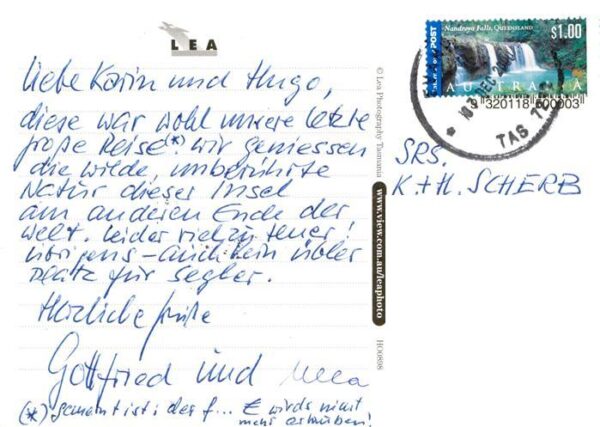 LEA
Liebe Karin und Hugo,
diese war wohl unsere letzte
große Reise(*). Wir geniessen
die wilde, unberührte
Natur dieser Insel
am anderen Ende der
Welt. Leider viel zu teuer!
Übrigens – auch kein übler
Platz für Segler.
Herzliche Grüße
Gottfried und
(*) gemeint ist: der f... € wirds nicht
mehr erlauben!
© Lea Photography Tasmania
www.view.com.au/leaphoto
HO0898
Nandroya Falls, QUEENSLAND
$1.00
POST
AUSTRALIA
320118 600003
TAS
SRS.
K.+H. SCHERB